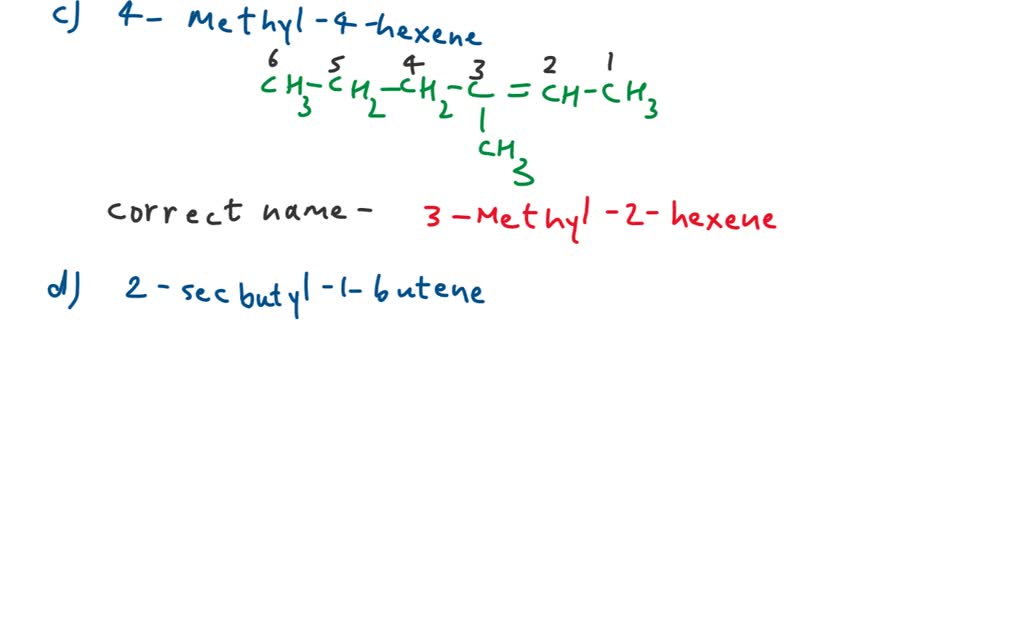 c) 4- Methyl-4-hexene
6 5 4 3 2 1
CH3-CH2-CH2-C=CH-CH3
|
CH3
correct name- 3-Methyl-2-hexene
d) 2-secbutyl-1-butene